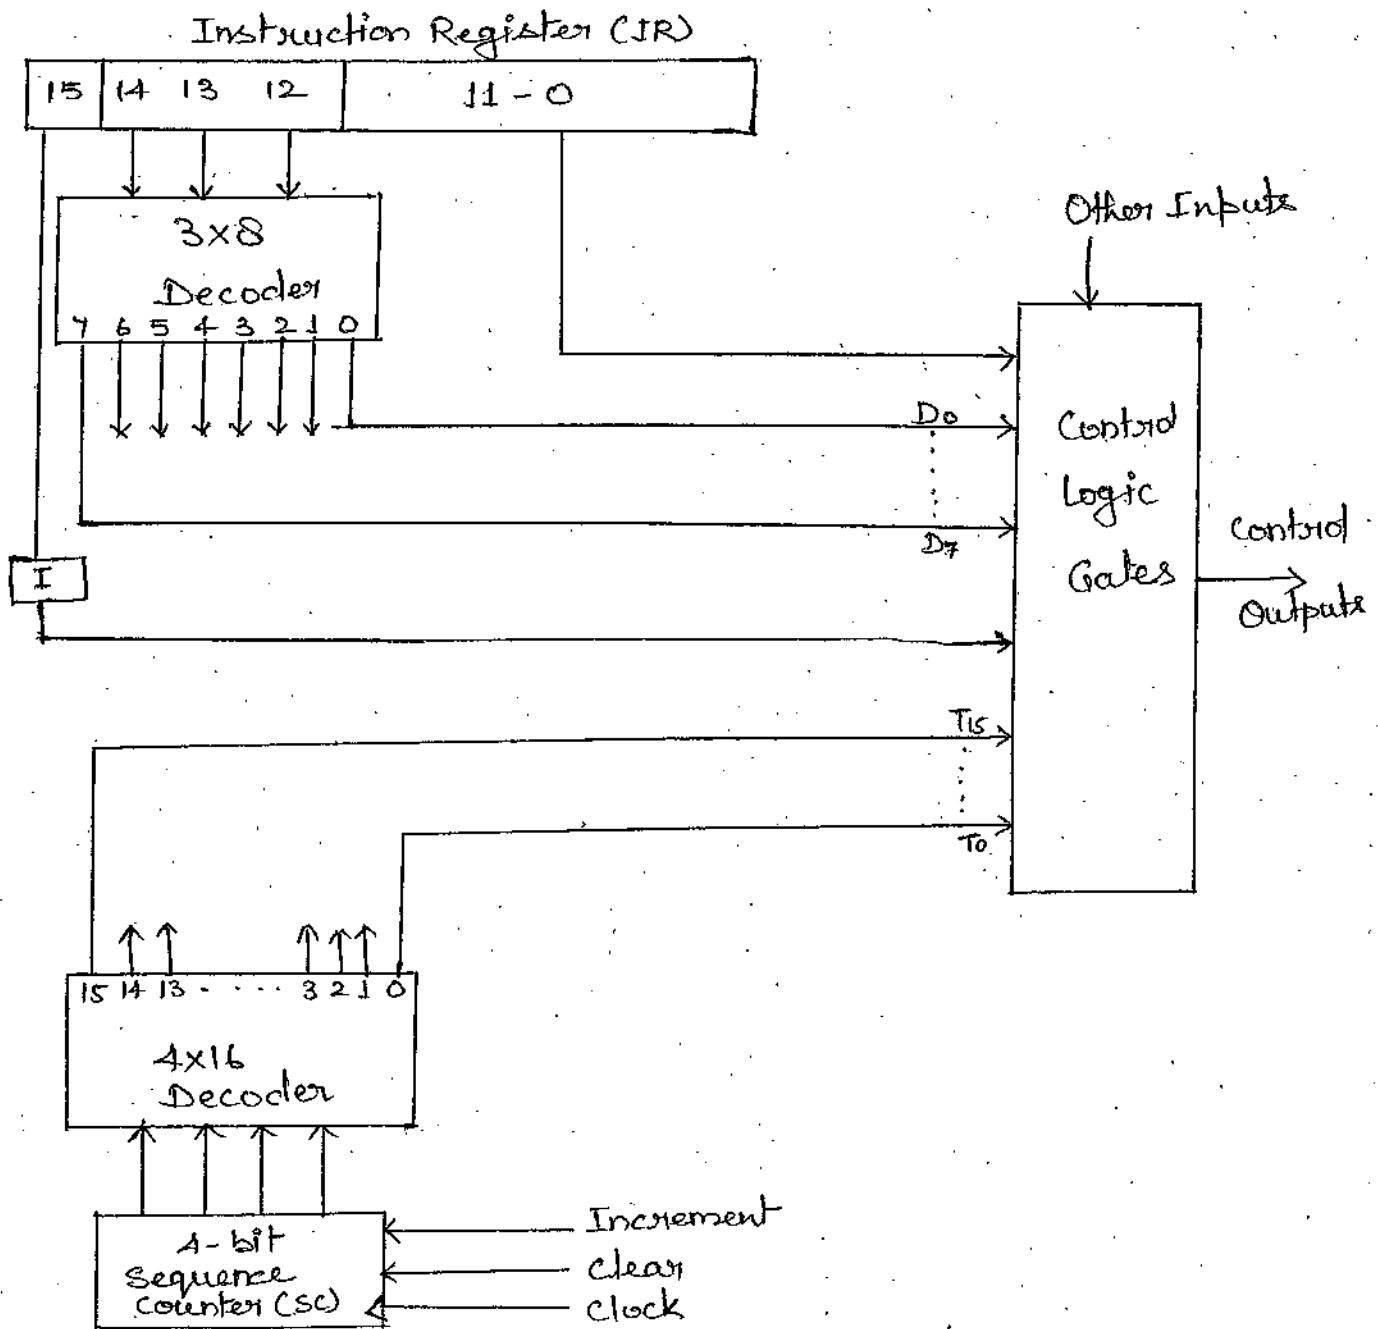 Instruction Register (IR)
15 14 13 12 11-0
3×8
Decoder
7 6 5 4 3 2 1 0
Other Inputs
D0
D7
I
Control
Logic
Gates
Control
Outputs
T15
T0
15 14 13 - · ... 3 2 1 0
4×16
Decoder
4-bit
Sequence
Counter (SC)
Increment
Clear
Clock